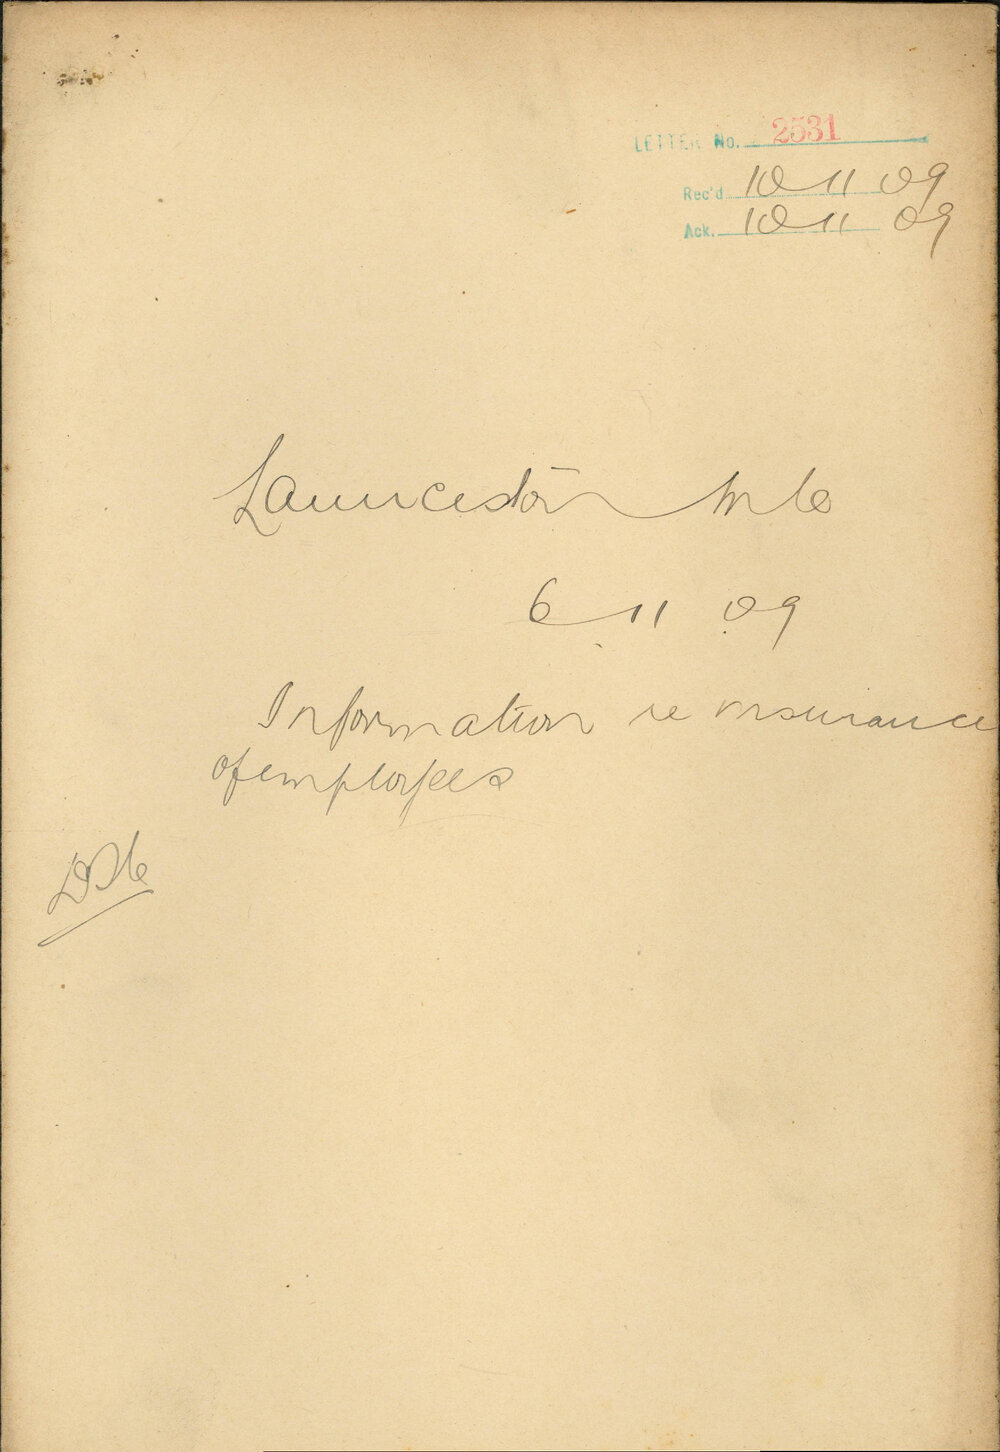 LETTER No. 2531
Rec'd 10 11 09
Ack. 10 11 09
Launceston
6 11 09
Information re insurance
of employees